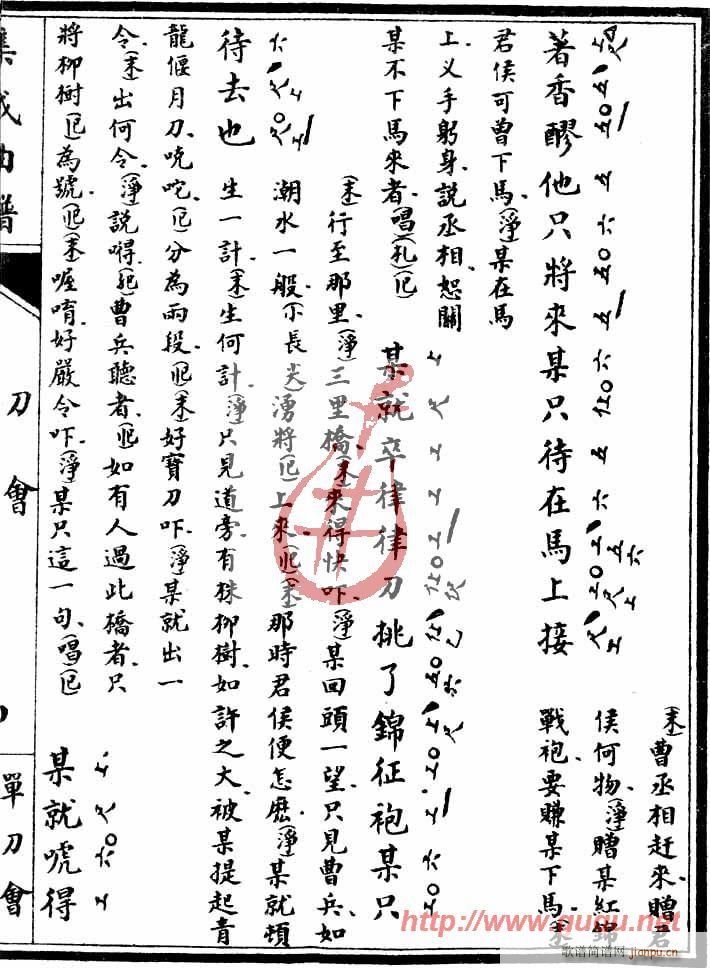 著香醪他只將來某只待在馬上接
(末)曹丞相赶來贈君
侯何物(淨)贈某紅錦
戰袍要賺某下馬(末)
君侯可曾下馬(淨)某在馬
上义手躬身説丞相恕關
某不下馬來者(唱)
某就卒律律刀挑了錦征袍某只
(末)行至那里(淨)三里橋(末)來得快吓(淨)某回頭一望只見曹兵如
潮水一般湧將上來(末)那時君侯便怎麽(淨)某就頓
待去也
生一計(末)生何計(淨)只見道旁有株柳樹如許之大被某提起青
龍偃月刀吭咜分為兩段(末)好寶刀吓(淨)某就出一
令(末)出何令(淨)説嘚曹兵聽者如有人過此橋者只
將柳樹為號(末)喔唷好嚴令吓(淨)某只這一句(唱)
某就唬得
集成曲譜
刀會
單刀會
http://www.ququ.net
歌谱简谱网
jianpu.cn